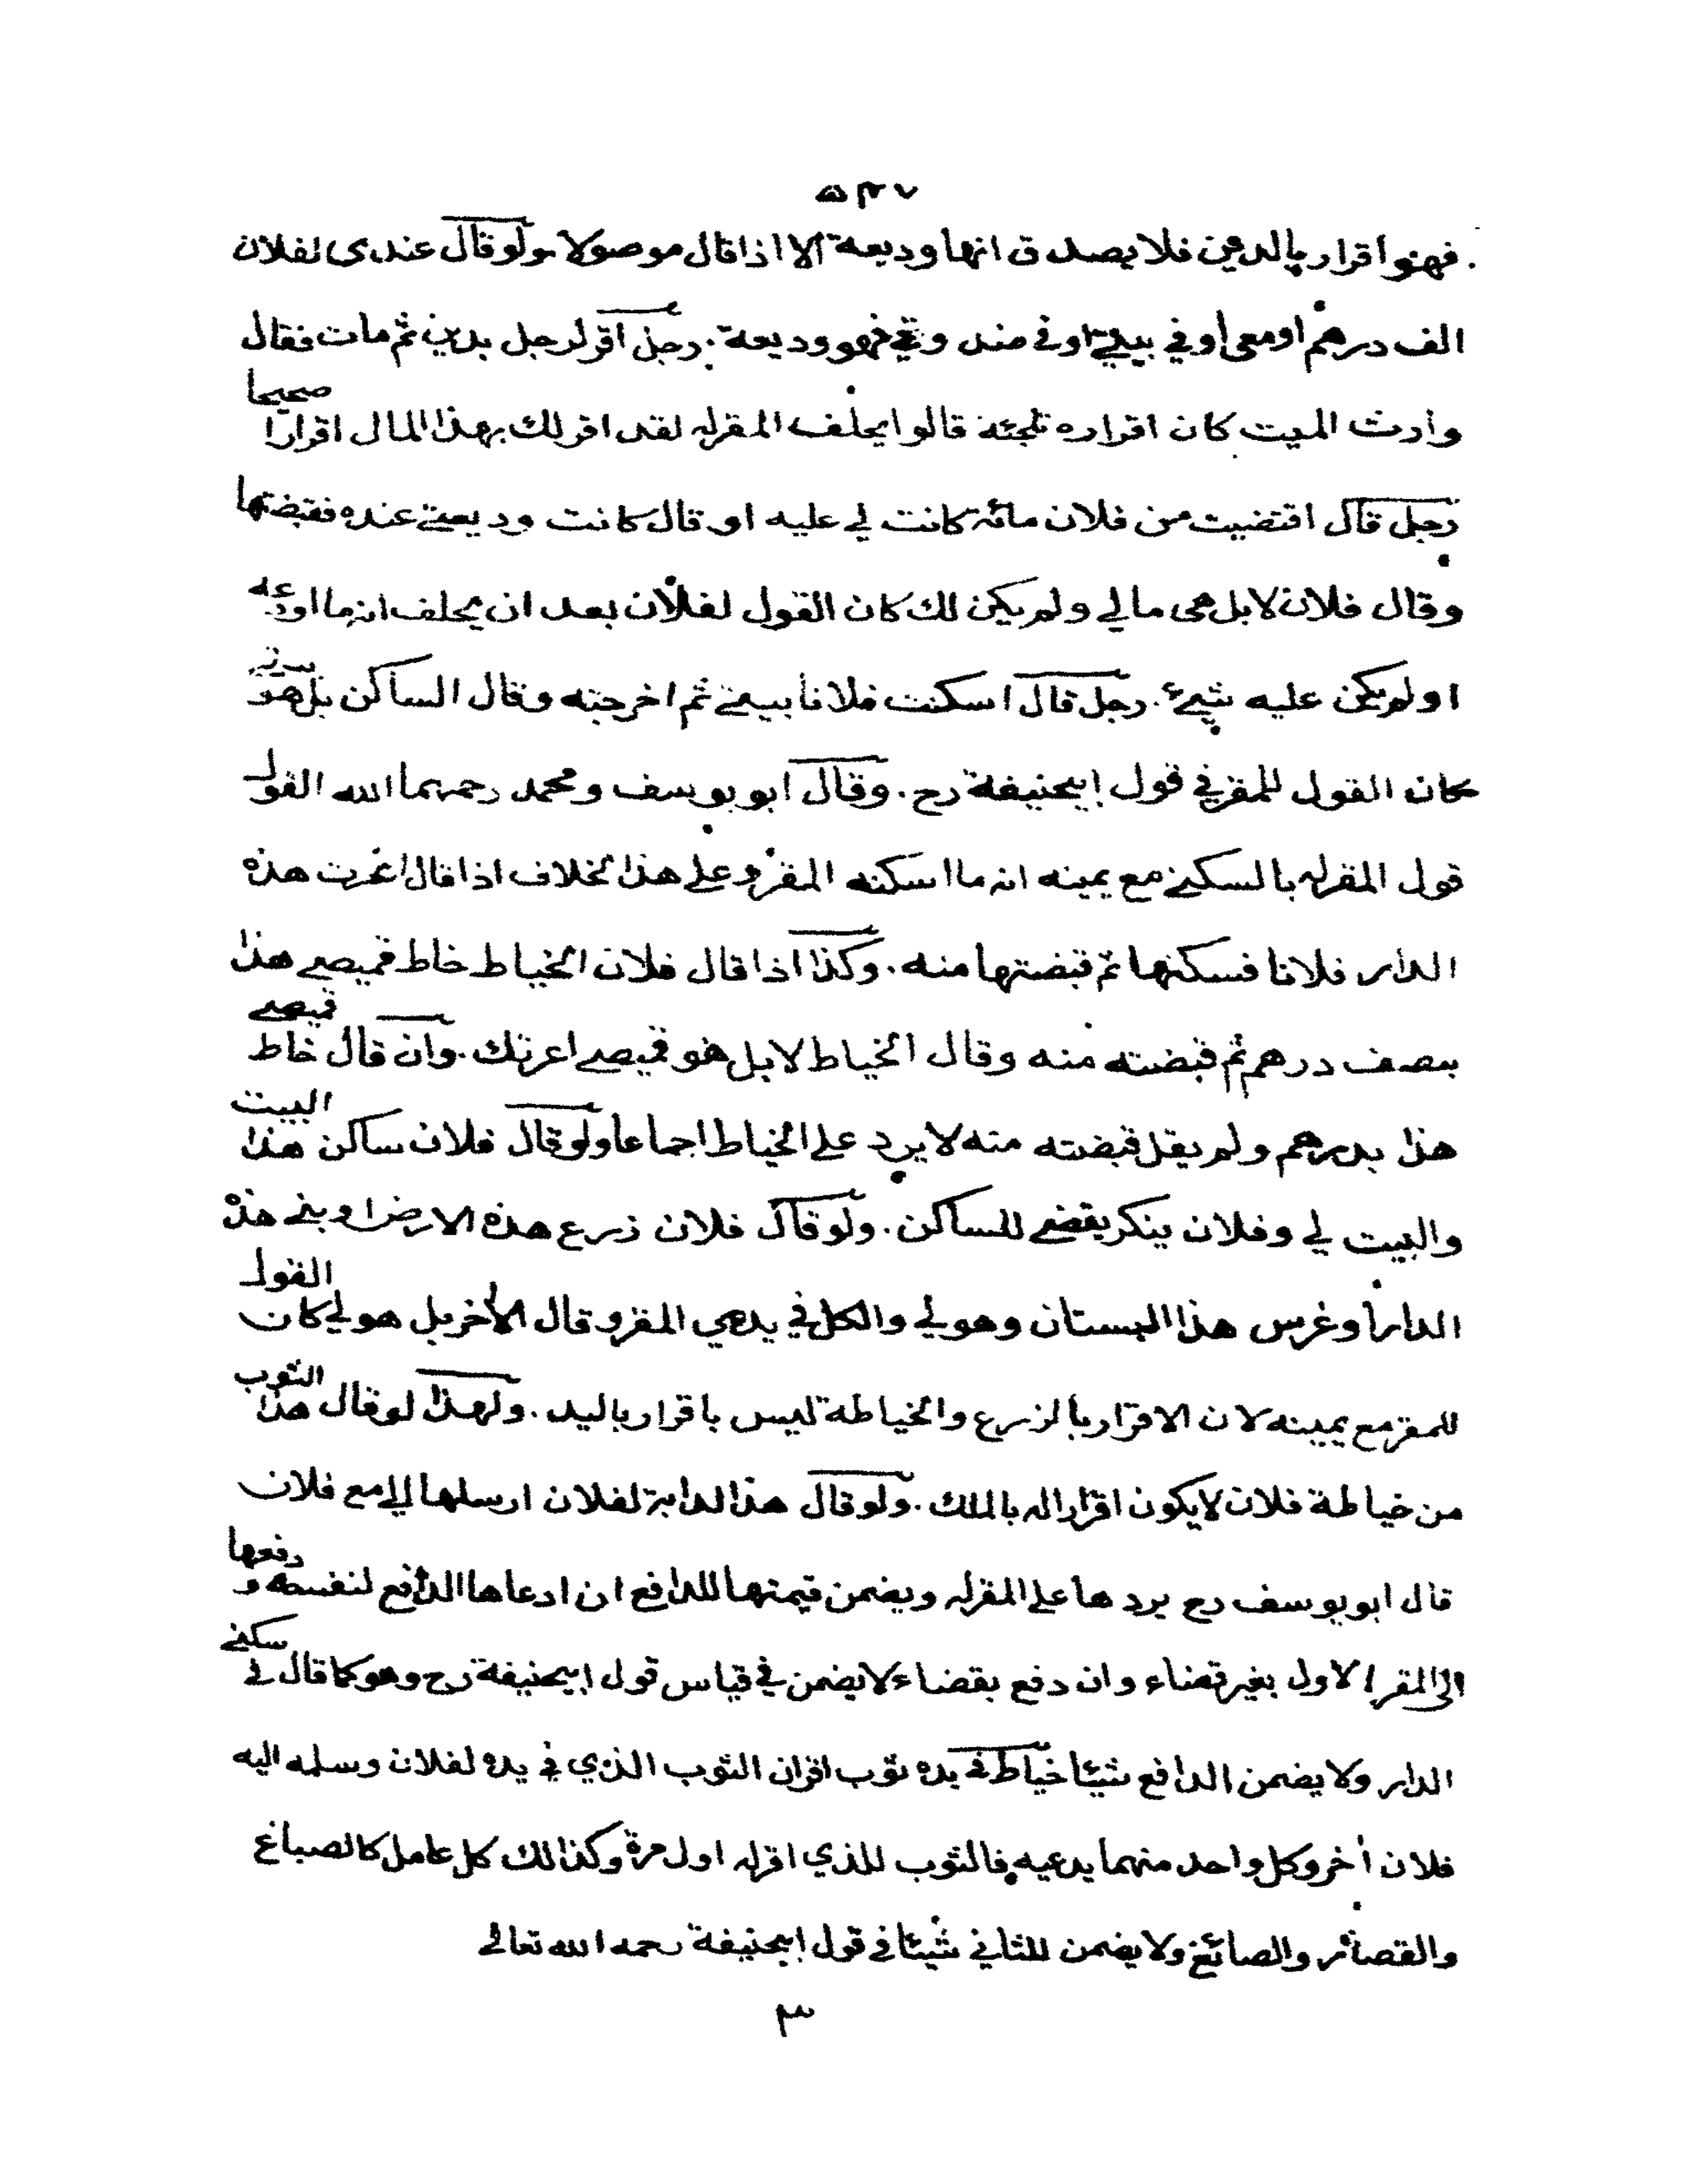 ٥٣٧
فهو اقرار بالدين فلا يصدق انها وديعة الا اذا قال موصولا ولو قال عندي لفلان
الف درهم او معي او في بيتي او في صندوقي فهو وديعة . رجل اقر لرجل بدين ثم مات فقال
وارث الميت كان اقراره تلجئة قالوا يحلف المقر له لقد اقر لك بهذا المال اقرارا صحيحا
رجل قال اقتضيت من فلان مائة كانت لي عليه او قال كانت وديعتي عنده فقبضتها
وقال فلان لا بل هي مالي ولم يكن لك كان القول لفلان بعد ان يحلف انه ما اودعه
او لم يكن عليه شيء . رجل قال اسكنت فلانا بيتي ثم اخرجته وقال الساكن بل هو بيتي
كان القول للمقر في قول ابيحنيفة رح . وقال ابو يوسف ومحمد رحمهما الله القول
قول المقر له بالسكنى مع يمينه انه ما اسكنه المقر وعلى هذا الخلاف اذا قال اعرت هذه
الدار فلانا فسكنها ثم قبضتها منه . وكذا اذا قال فلان الخياط خاط قميصي هذا
بنصف درهم ثم قبضته منه وقال الخياط لا بل هو قميصي اعرتك . وان قال خاط قميصي
هذا بدرهم ولم يقل قبضته منه لا يرد على الخياط اجماعا ولو قال فلان ساكن هذا البيت
والبيت لي وفلان ينكر يقضى للساكن . ولو قال فلان زرع هذه الارض او بنى هذه
الدار او غرس هذا البستان وهو لي والكل في يدي المقر وقال الآخر بل هو لي كان القول
للمقر مع يمينه لان الاقرار بالزرع والخياطة ليس باقرار باليد . ولهذا لو قال هذا الثوب
من خياطة فلان لا يكون اقرارا له بالملك . ولو قال هذا الدابة لفلان ارسلها الي مع فلان
قال ابو يوسف رح يردها على المقر له ويضمن قيمتها للدافع ان ادعاها الدافع لنفسه و دفعها
الى المقر الاول بغير قضاء وان دفع بقضاء لا يضمن في قياس قول ابيحنيفة رح وهو كما قال في سكنى
الدار ولا يضمن الدافع شيئا خياط في يده ثوب اقر ان الثوب الذي في يده لفلان وسلمه اليه
فلان آخر وكل واحد منهما يدعيه فالثوب للذي اقر له اول مرة وكذالك كل عامل كالصباغ
والقصار والصائغ ولا يضمن للثاني شيئا في قول ابيحنيفة رحمه الله تعالى
٣